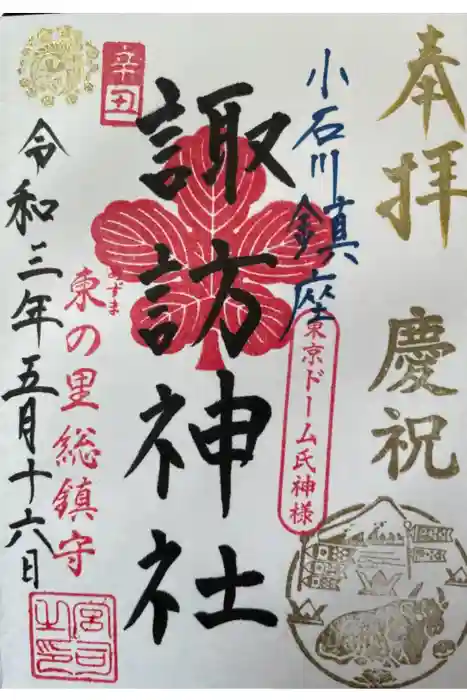 奉拝
慶祝
小石川鎮座
東京ドーム氏神様
諏訪神社
辛丑
あずま
東の里総鎮守
令和三年五月十六日
宮司之印